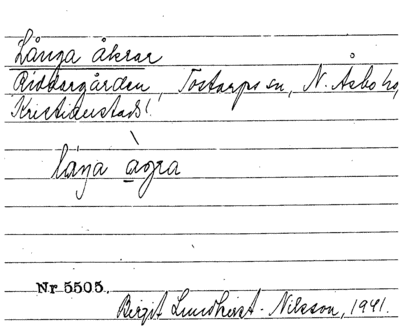 Långa åkrar
Riddargården, Tostarps sn, N. Åsbo hd,
Kristianstads l.
låŋa ągra
Nr 5505.
Birgit Lundkvist-Nilsson, 1941.